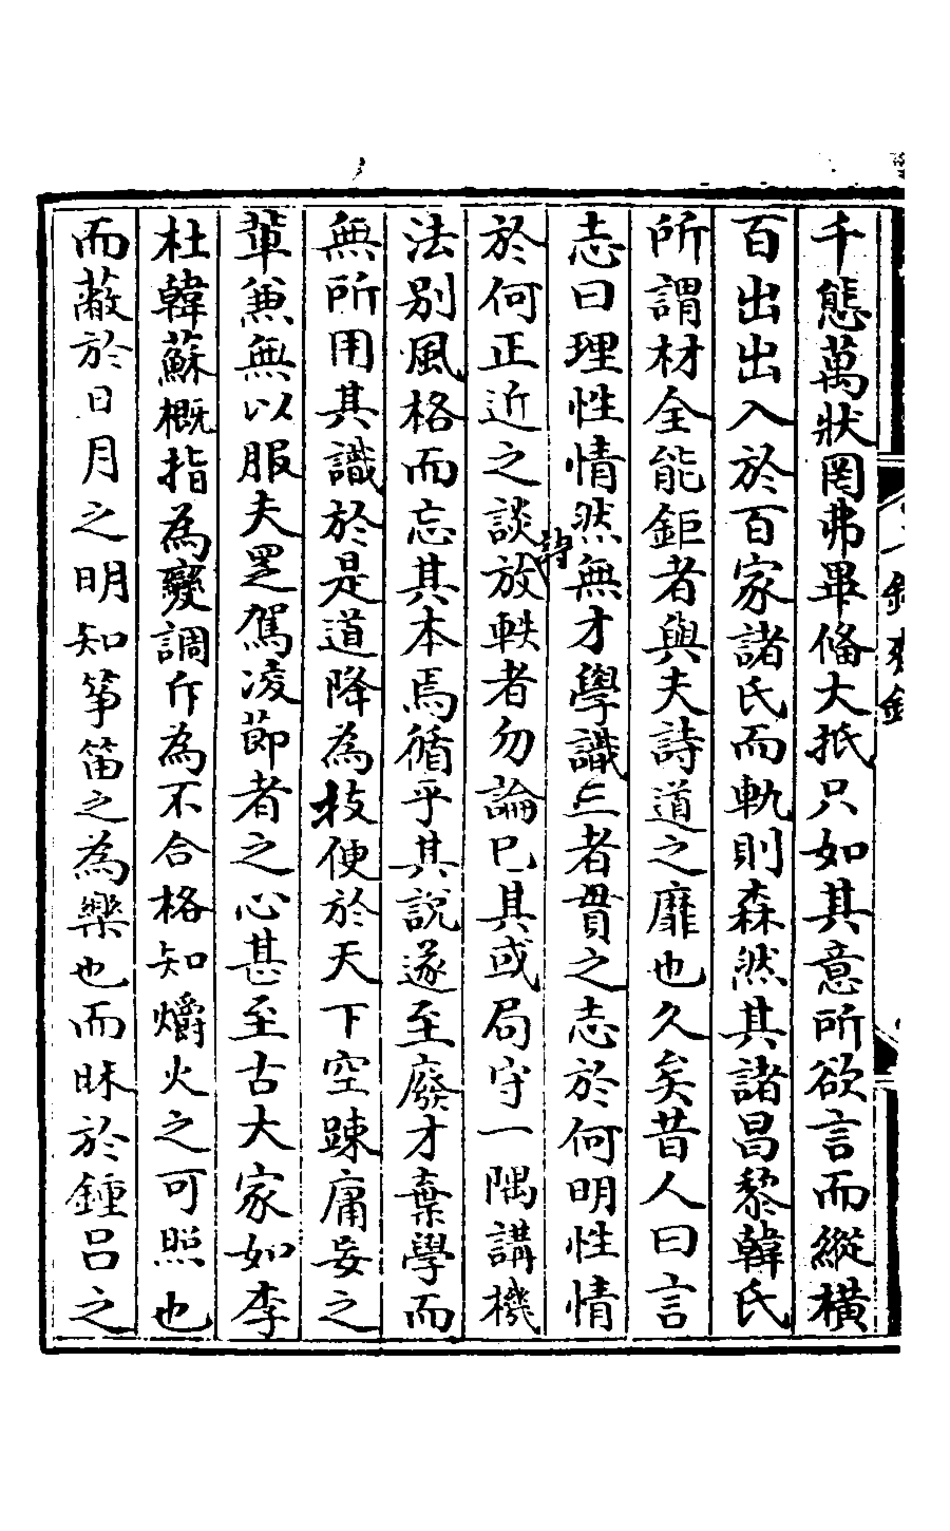 千態萬狀罔弗畢俻大抵只如其意所欲言而縱橫
百出出入於百家諸氏而軌則森然其諸昌黎韓氏
所謂材全能鉅者與夫詩道之靡也久矣昔人曰言
志曰理性情然無才學識三者貫之志於何明性情
於何正近之談詩放軼者勿論已其或局守一隅講機
法別風格而忘其本焉循乎其說遂至廢才棄學而
無所用其識於是道降為技便於天下空踈庸妄之
輩兼無以服夫罣駕凌節者之心甚至古大家如李
杜韓蘇概指為變調斥為不合格知爝火之可照也
而蔽於日月之明知箏笛之為樂也而昧於鍾呂之